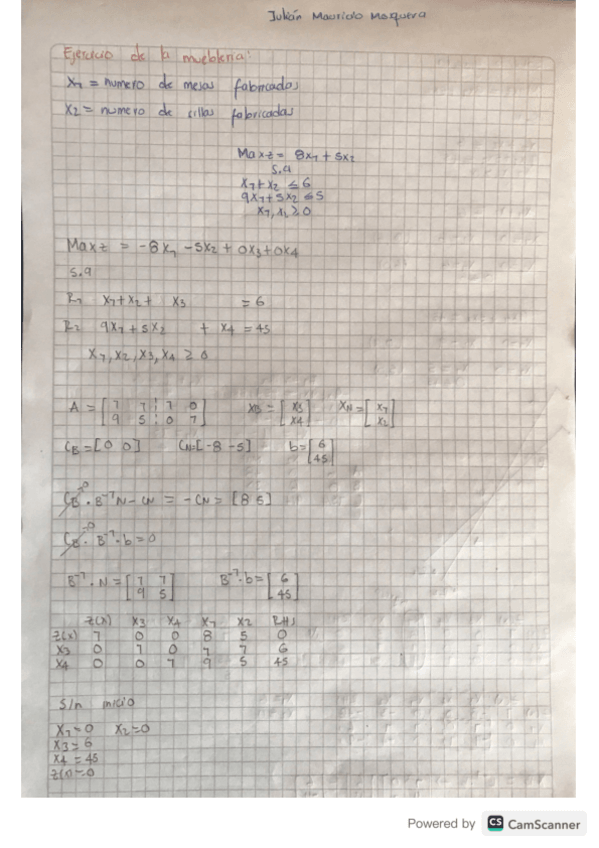 Julián Mauricio Mosquera
Ejercicio de la mueblería:
X1 = numero de mesas fabricadas
X2 = numero de sillas fabricadas
Max z = 8x1 + 5x2
S.a
X1 + X2 ≤ 6
9X1 + 5X2 ≤ 5
X1, X2 ≥ 0
Max z = -8X1 - 5X2 + 0X3 + 0X4
S.a
R1 X1 + X2 + X3 = 6
R2 9X1 + 5X2 + X4 = 45
X1, X2, X3, X4 ≥ 0
A = [1 1 1 0 XB = [X3 XN = [X1
9 5 0 1] X4] X2]
CB = [0 0] CN = [-8 -5] b = [6
45]
CB · B⁻¹N - CN = -CN = [8 5]
CB · B⁻¹ · b = 0
B⁻¹ · N = [1 1 B⁻¹ · b = [6
9 5] 45]
z(x) X3 X4 X1 X2 RHS
z(x) 1 0 0 8 5 0
X3 0 1 0 1 1 6
X4 0 0 1 9 5 45
Sln inicio
X1 = 0 X2 = 0
X3 = 6
X4 = 45
z(x) = 0
Powered by CS CamScanner